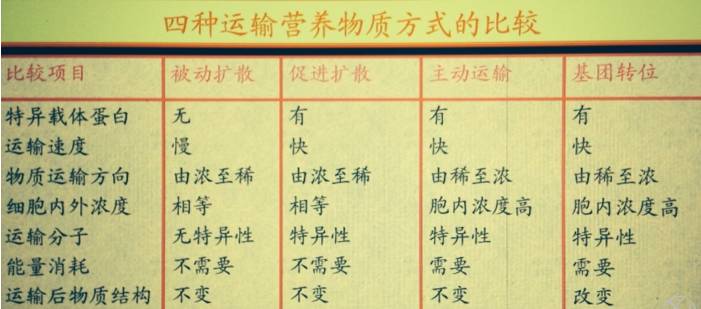 四种运输营养物质方式的比较
比较项目 被动扩散 促进扩散 主动运输 基团转位
特异载体蛋白 无 有 有 有
运输速度 慢 快 快 快
物质运输方向 由浓至稀 由浓至稀 由稀至浓 由稀至浓
细胞内外浓度 相等 相等 胞内浓度高 胞内浓度高
运输分子 无特异性 特异性 特异性 特异性
能量消耗 不需要 不需要 需要 需要
运输后物质结构 不变 不变 不变 改变